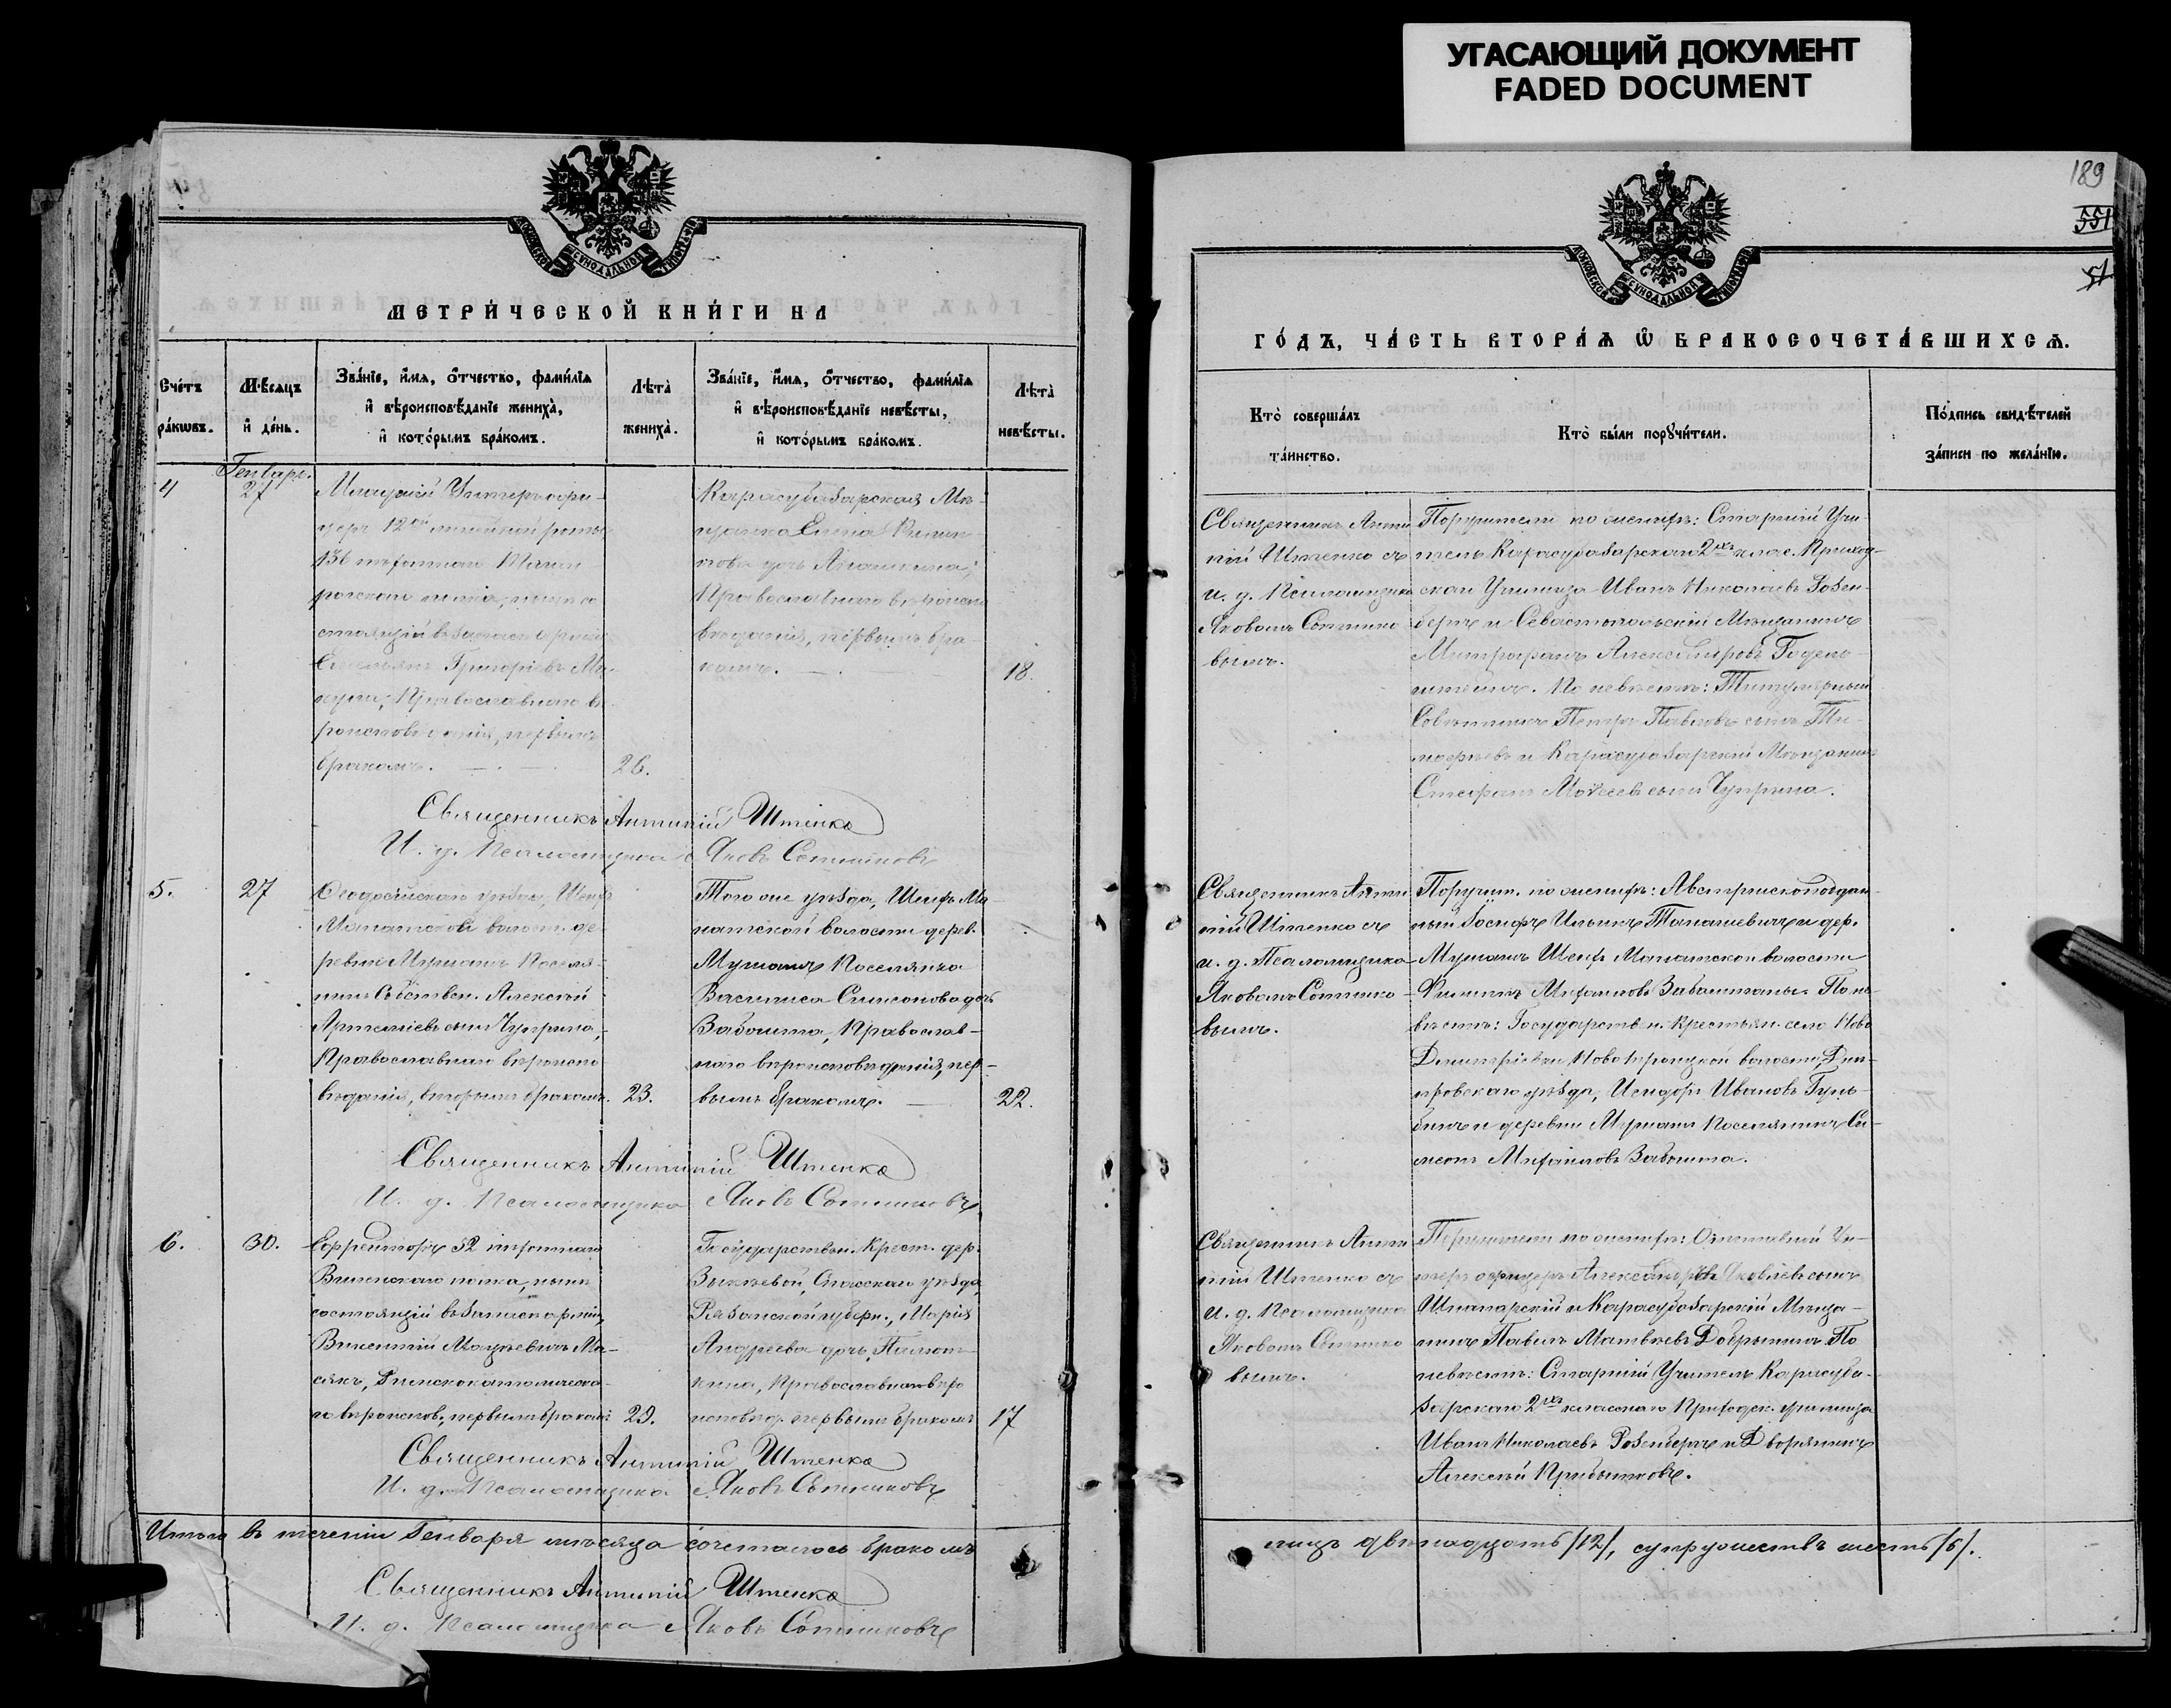 УГАСАЮЩИЙ ДОКУМЕНТ
FADED DOCUMENT
189
551
51
МЕТРИ́ЧЕСКОЙ КНИ́ГИ НА
Счéтъ
рáкωвъ.
Мѣсяцъ
и҆ дéнь.
Звáнїе, и҆́мя, ѻ҆́тчество, фамѝлїя
и҆ вѣроисповѣ́данїе женихà,
и҆ котóрымъ брáкомъ.
Лѣтà
женихà.
Звáнїе, и҆́мя, ѻ҆́тчество, фамѝлїя
и҆ вѣроисповѣ́данїе невѣ́сты,
и҆ котóрымъ брáкомъ.
Лѣтà
невѣ́сты.
ГÓДЪ, ЧÁСТЬ ВТОРÁЯ Ѽ БРАКОСОЧЕТÁВШИХСЯ.
Ктò совершáлъ
тáинство.
Ктò бы́ли порꙋчи́тели.
Пóдпись свидѣ́телей
зáписи по желáнїю.
Генварь.
4
27
Младшій Унтеръ-офи-
церъ 12ой линейной роты
136 пѣхотнаго Таган-
рогскаго полка,
состоящій въ запасѣ арміи
Григорьевъ
Православнаго вѣ-
роисповѣданія, первымъ
бракомъ.
26.
Карасубазарская Мѣ-
щанка Елена Филип-
пова дочь
Православнаго вѣроиспо-
вѣданія, первымъ бра-
комъ.
18.
Священникъ Анти-
пій Штенко съ
и. д. Псаломщика
Яковомъ Сотнико-
вымъ.
Поручители по женихѣ: Старшій Учи-
тель Карасубазарскаго 2хъ клас. Приход-
скаго Училища Иванъ Николаевъ Розен-
бергъ и Севастопольскій Мѣщанинъ
Митрофанъ Александровъ
По невѣстѣ: Титулярный
Совѣтникъ Петръ Павловъ сынъ Ти-
мофѣевъ и Карасубазарскій Мѣщанинъ
Стефанъ Моѵсеевъ сынъ Чуприна.
Священникъ Антипій Штенко
И. д. Псаломщика Яковъ Сотниковъ
5.
27
Ѳеодосійскаго уѣзда, Шейхъ
Монатской волост. де-
ревни Мушашъ Поселя-
нинъ Собствен. Алексѣй
Артеміевъ сынъ Чуприна,
Православнаго вѣроиспо-
вѣданія, вторымъ бракомъ.
23.
Того же уѣзда, Шейхъ Мо-
натской волости дерев.
Мушашъ Поселянка
Василиса Симеонова дочь
Забошта, Православ-
наго вѣроисповѣданія, пер-
вымъ бракомъ.
22.
Священникъ Анти-
пій Штенко съ
и. д. Псаломщика
Яковомъ Сотнико-
вымъ.
Поручит. по женихѣ: Австрійскоподдан-
ный Іосифъ Ильинъ и дер.
Мушашъ Шейхъ Монатской волости
Филиппъ Михайловъ По не-
вѣстѣ: Государствен. Крестьян. села Ново
Дмитріевки Ново Троицкой волости, Днѣ-
провскаго уѣзда, Исидоръ Ивановъ
и деревни Мушашъ Поселянинъ Си-
меонъ Михайловъ Забошта.
Священникъ Антипій Штенко
И. д. Псаломщика Яковъ Сотниковъ
6.
30.
Ефрейторъ 52 пѣхотнаго
Виленскаго полка, нынѣ
состоящій въ запасѣ арміи,
Викентій
Римскокатолическа-
го вѣроиспов., первымъ бракомъ
29.
Государствен. Крест. дер.
Спасскаго уѣзда,
Рязанской губерн., Марія
Андреева дочь,
Православнаго вѣро
исповѣд. первымъ бракомъ
17
Священникъ Анти-
пій Штенко съ
и. д. Псаломщика
Яковомъ Сотнико-
вымъ.
Поручители по женихѣ: Отставной Ун-
теръ офицеръ Александръ Яковлевъ сынъ
и Карасубазарскій Мѣща-
нинъ Павелъ Матвѣевъ Добрынинъ. По
невѣстѣ: Старшій Учитель Карасуба-
зарскаго 2хъ класснаго Приходск. училища
Иванъ Николаевъ Розенбергъ и Дворянинъ
Алексѣй Прибытковъ.
Священникъ Антипій Штенко
И. д. Псаломщика Яковъ Сотниковъ
Итого въ теченіи Генваря мѣсяца сочеталось бракомъ
лицъ двѣнадцать /12/, супружествъ шесть /6/.
Священникъ Антипій Штенко
И. д. Псаломщика Яковъ Сотниковъ